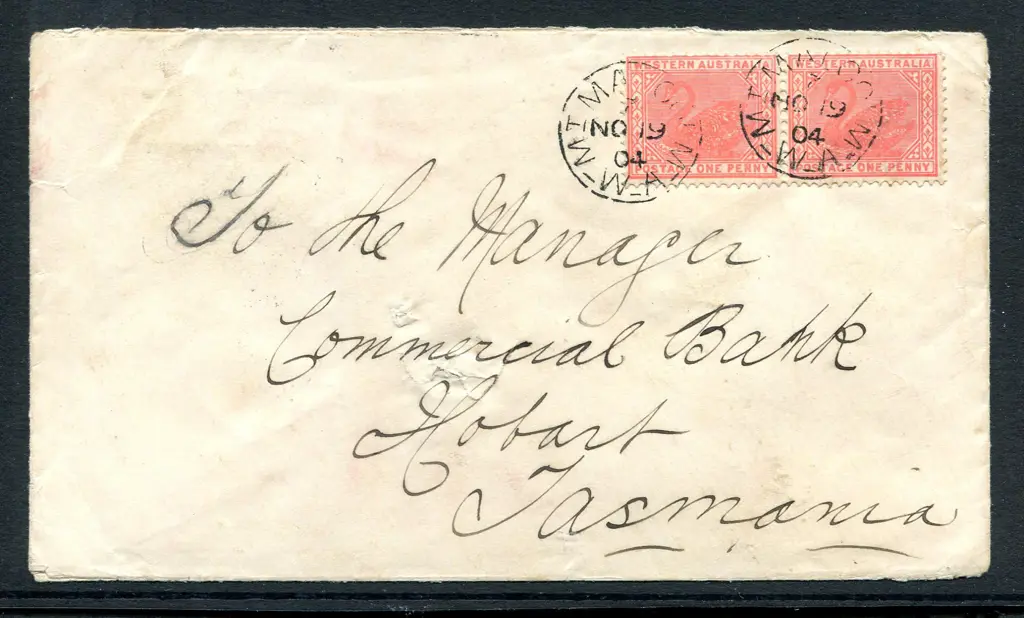 WESTERN AUSTRALIA WESTERN AUSTRALIA
MT MA
NO 19
04
W.A.
NO 19
04
W.A.
POSTAGE ONE PENNY POSTAGE ONE PENNY
To the Manager
Commercial Bank
Hobart
Tasmania